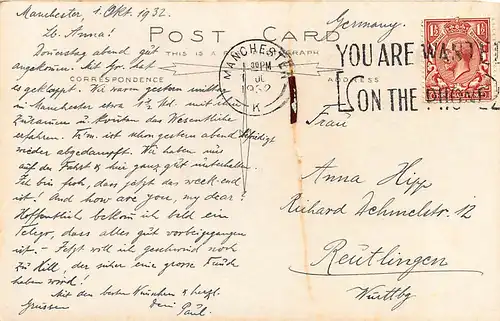 Manchester, 1. Okt. 1932.
Lb. Anna!
Donnerstag abend gut
angekommen. Mit Gr. hat
es geklappt. Wir waren gestern mitten
in Manchester etwa 1½ Std. mit
und das Wesentliche
erfahren. ist schon gestern abend
wieder abgedampft. Wir haben uns
auf der Fahrt & hier ganz gut unterhalten.
bin froh, dass jetzt das week-end
ist! And how are you, my dear?
Hoffentlich bekomm ich bald ein
Telegr., dass alles gut vorbeigegangen
ist. – Jetzt will ich geschwind noch
zu Hill, der sicher eine grosse Freude
haben wird!
Mit den besten Wünschen & herzl.
Grüssen Dein Paul.
POST CARD
THIS IS A
CORRESPONDENCE
ADDRESS
MANCHESTER
PM
1932
K
YOU ARE WANTED
ON THE PHONE
Germany.
Frau
Anna Hipp
Richard Dehmelstr. 12
Reutlingen
Württbg